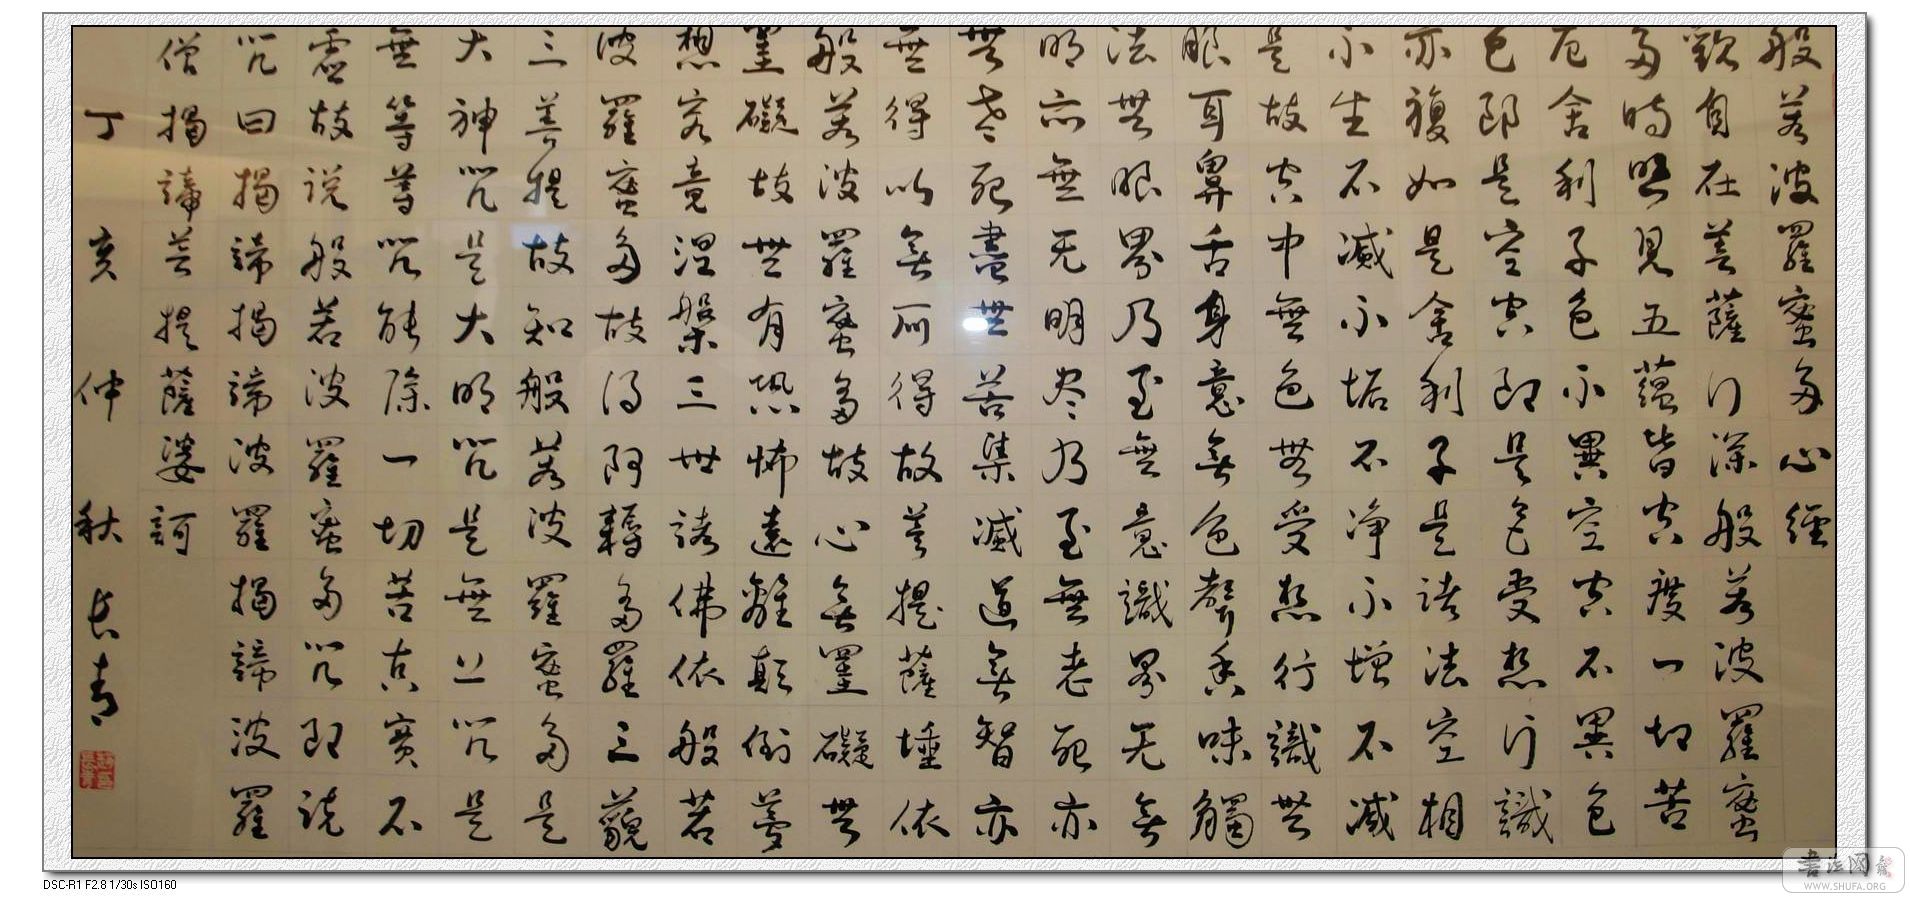 般若波羅蜜多心經
觀自在菩薩行深般若波羅蜜
多時照見五蘊皆空度一切苦
厄舍利子色不異空空不異色
色即是空空即是色受想行識
亦複如是舍利子是諸法空相
不生不滅不垢不淨不增不減
是故空中無色無受想行識無
眼耳鼻舌身意無色聲香味觸
法無眼界乃至無意識界无無
明亦無无明尽乃至無老死亦
無老死盡無苦集滅道無智亦
無得以無所得故菩提薩埵依
般若波羅蜜多故心無罣礙無
罣礙故無有恐怖遠離顛倒夢
想究竟涅槃三世諸佛依般若
波羅蜜多故得阿耨多羅三藐
三菩提故知般若波羅蜜多是
大神咒是大明咒是無上咒是
無等等咒能除一切苦真實不
虛故說般若波羅蜜多咒即說
咒曰揭諦揭諦波羅揭諦波羅
僧揭諦菩提薩婆訶
丁亥仲秋長青
DSC-R1 F2.8 1/30s ISO160
書法网
WWW.SHUFA.ORG